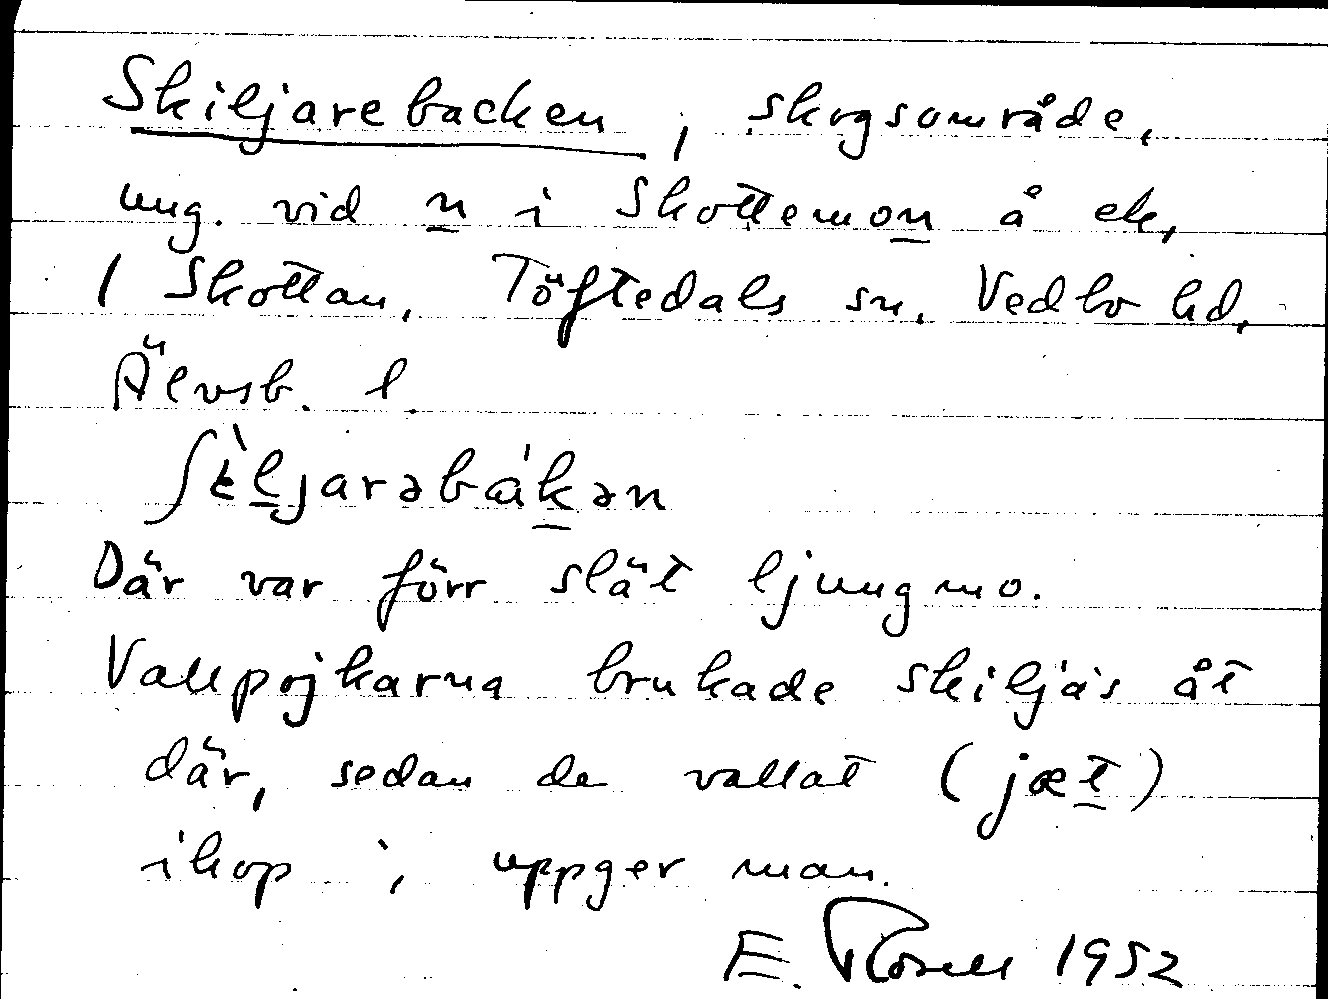 Skiljarebacken, skogsområde,
ung. vid n i Skottemon å ek,
1 Skottan, Töftedals sn, Vedbo hd,
Älvsb. l.
ʃɛ̀l̲jarəbákən
Där var förr slät ljungmo.
Vallpojkarna brukade skiljas åt
där, sedan de vallat (jæt)
ihop, uppger man.
E. Rosell 1952